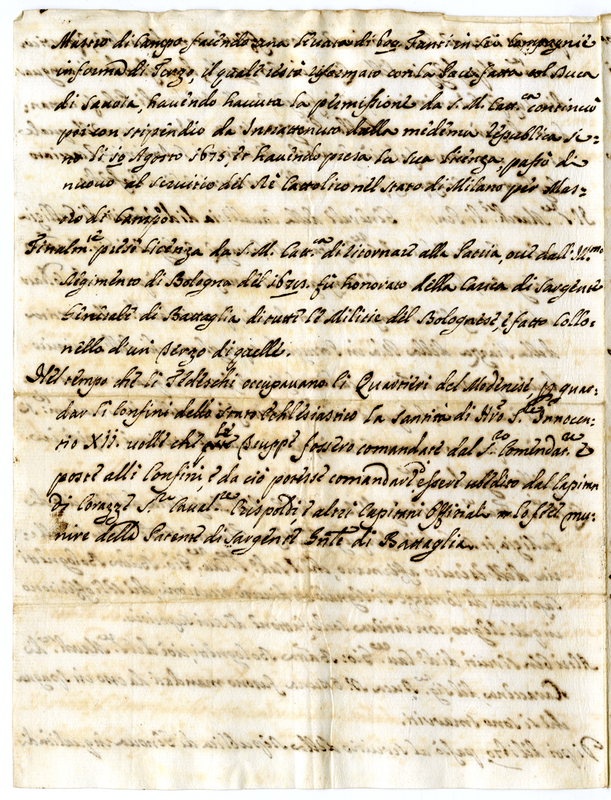 Mastro di Campo facendo una levata di 600 Fanti in sei Compagnie
in forma di Terzo, il quale restò riformato con la Pace fatta col Duca
di Savoia, havendo havuta la permissione da S. M. Catt.ca continuò
poi con stipendio da Intrattenuto dalla medema Republica si=
no li 10 Agosto 1675, et havendo presa la sua licenza, passò di
nuovo al servitio del Rè Cattolico nel Stato di Milano per Mas=
tro di Campo.
Finalm.te prese licenza da S. M. Catt.ca di ritornare alla Patria, ove dall' Ill.mo
Regimento di Bologna del fù honorato della Carica di Sargente
Generale di Battaglia di tutte le Militie del Bolognese, e fatto Collo=
nello d'un Terzo di quelle.
Nel tempo che li Tedeschi occupavano li Quartieri del Modenese, p guar=
dar li Confini dello Stato Ecclesiastico la Santità di N'ro S.re Innocen=
tio XII. volle che le Truppe fossero comandate dal S.r Comendat.re
poste alli Confini, e da ciò potesse comandare, e essere ubbidito dal Capitan
di Corazze S.r Caval.re Crispoldi, e altri Capitani Officiali lo fece mu=
nire della Patente di Sargente Gn'te di Battaglia.